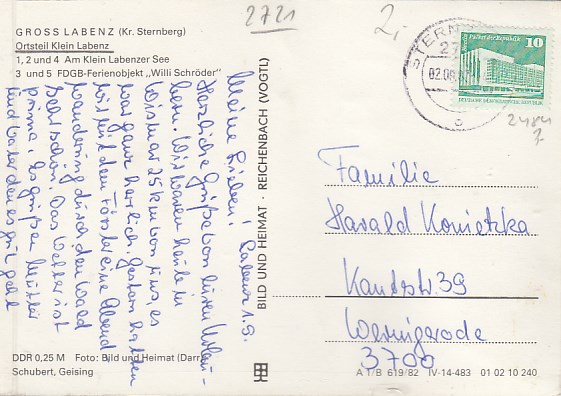 2721
2,-
GROSS LABENZ (Kr. Sternberg)
Ortsteil Klein Labenz
1, 2 und 4 Am Klein Labenzer See
3 und 5 FDGB-Ferienobjekt „Willi Schröder"
Meine Lieben! Labenz 1.9.
Herzliche Grüße von unseren Urlau-
bern. Wir waren heute in
Wismar 25 km von uns, es
war ganz herrlich. Gestern hatten
wir mit dem Förster eine Abend
wanderung durch den Wald
Sehr schön. Das Wetter ist
prima. Es grüßen Mutter
und Vater den es gut geht
BILD UND HEIMAT · REICHENBACH (VOGTL)
STERN
27
02.09.
c
Palast der Republik
10
DEUTSCHE DEMOKRATISCHE REPUBLIK
2484
Familie
Harald Konietzka
Kantstr. 39
Wernigerode
3700
DDR 0,25 M Foto: Bild und Heimat (Darr)
Schubert, Geising
A 1/B 619/82 IV-14-483 01 02 10 240